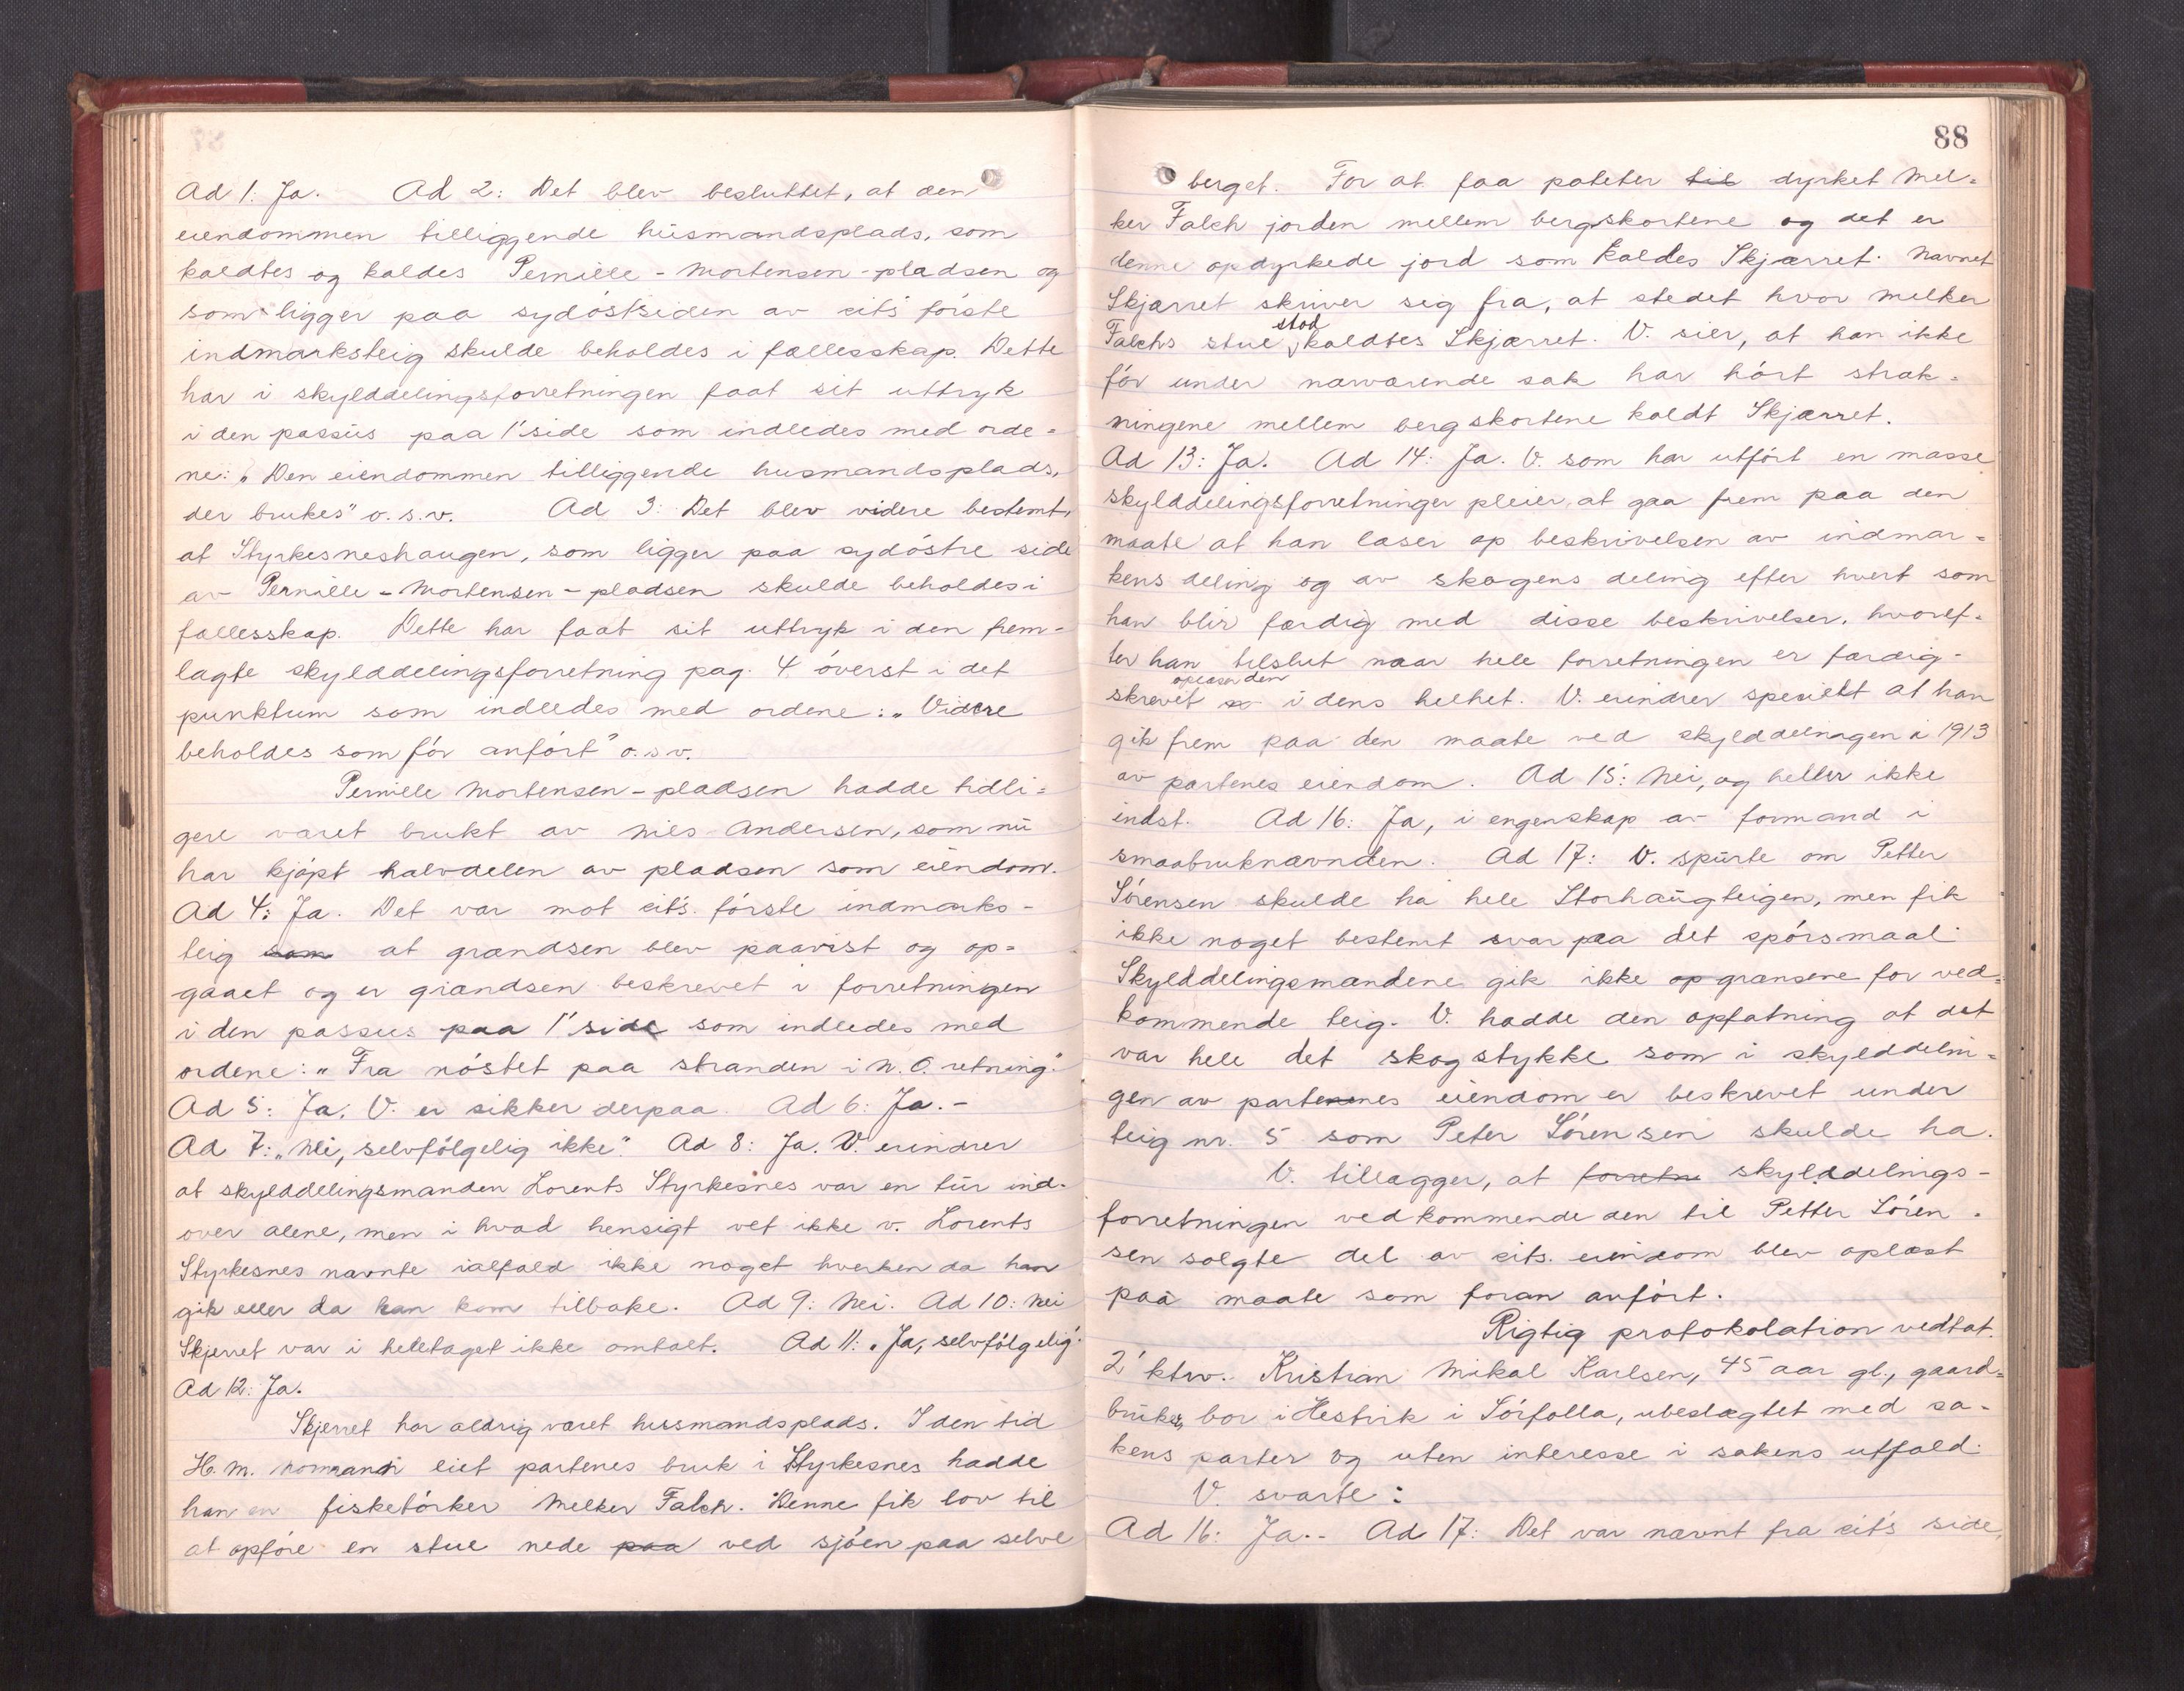 Ad 1: Ja. Ad 2: Det blev besluttet, at den
eiendommen tilliggende husmandsplads, som
kaldtes og kaldes Pernille-Mortensen-pladsen og
som ligger paa sydöstsiden av cit's förste
indmarksteig skulde beholdes i fællesskap. Dette
har i skylddelingsforretningen faat sit uttryk
i den passus paa 1' side som indledes med orde=
ne: „Den eiendommen tilliggende husmandsplads,
der brukes" o.s.v. Ad 3: Det blev videre bestemt,
at Styrkesneshaugen, som ligger paa sydöstre side
av Pernille-Mortensen-pladsen skulde beholdes i
fællesskap. Dette har faat sit uttryk i den frem-
lagte skylddelingsforretning pag. 4 överst i det
punktum som indledes med ordene: „Videre
beholdes som för anfört" o.s.v.
Pernille Mortensen-pladsen hadde tidli=
gere været brukt av Nils Andersen, som nu
har kjöpt halvdelen av pladsen som eiendom.
Ad 4: Ja. Det var mot cit's. förste indmarks-
teig som at grændsen blev paavist og op=
gaaet og er grændsen beskrevet i forretningen
i den passus paa 1' side som indledes med
ordene: „Fra nöstet paa stranden i N.O. retning."
Ad 5: Ja, V. er sikker derpaa. Ad 6: Ja.-
Ad 7: „Nei, selvfölgelig ikke". Ad 8: Ja. V. erindrer
at skylddelingsmanden Lorents Styrkesnes var en tur ind-
over alene, men i hvad hensigt vet ikke v. Lorents
Styrkesnes nævnte ialfald ikke noget hverken da han
gik eller da han kom tilbake. Ad 9: Nei. Ad 10: Nei
Skjerret var i heletaget ikke omtalt. Ad 11: „Ja, selvfölgelig".
Ad 12: Ja.
Skjerret har aldrig været husmandsplads. I den tid
H. M. Normann eiet partenes bruk i Styrkesnes hadde
han en fisketörker Melker Falch. Denne fik lov til
at opföre en stue nede paa ved sjöen paa selve
88
berget. For at faa poteter til dyrket Mel=
ker Falch jorden mellem bergskortene og det er
denne opdyrkede jord som kaldes Skjærret. Navnet
Skjærret skriver sig fra, at stedet hvor Melker
Falchs stue stod kaldtes Skjærret. V. sier, at han ikke
för under nærværende sak har hört stræk=
ningene mellem bergskortene kaldt Skjærret.
Ad 13: Ja. Ad 14: Ja. V. som har utfört en masse
skylddelingsforretninger pleier at gaa frem paa den
maate at han læser op beskrivelsen av indmar=
kens deling og av skogens deling efter hvert som
han blir færdig med disse beskrivelser, hvoref=
ter han tilslut naar hele forretningen er færdig-
oplæser den
skrevet i dens helhet. V. erindrer specielt at han
gik frem paa den maate ved skylddelingen i 1913
av partenes eiendom. Ad 15: Nei, og heller ikke
indst. Ad 16: Ja, i egenskap av formand i
smaabruknævnden. Ad 17: V. spurte om Petter
Sörensen skulde ha hele Storhaugteigen, men fik
ikke noget bestemt svar paa det spörsmaal.
Skylddelingsmændene gik ikke op grænsene for ved=
kommende teig. V. hadde den opfatning at det
var hele det skogstykke som i skylddelin=
gen av partenenes eiendom er beskrevet under
teig nr. 5 som Peter Sörensen skulde ha.
V. tillægger, at forretni skylddelings-
forretningen vedkommende den til Petter Sören=
sen solgte del av cits. eiendom blev oplæst
paa maate som foran anfört.
Rigtig protokolation vedtat.
2' ktrv. Kristian Mikal Karlsen, 45 aar gl., gaard=
bruker, bor i Hestvik i Sörfolla, ubeslægtet med sa=
kens parter og uten interesse i sakens utfald.
V. svarte:
Ad 16: Ja.- Ad 17: Det var nævnt fra cit's side,